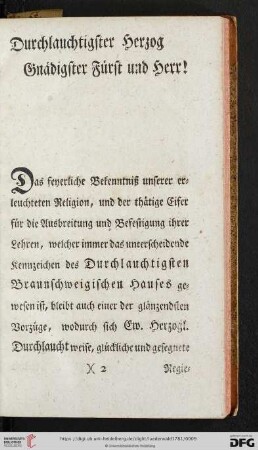 Durchlauchtigster Herzog
Gnädigster Fürst und Herr!
Das feyerliche Bekenntniß unserer er-
leuchteten Religion, und der thätige Eifer
für die Ausbreitung und Befestigung ihrer
Lehren, welcher immer das unterscheidende
Kennzeichen des Durchlauchtigsten
Braunschweigischen Hauses ge-
wesen ist, bleibt auch einer der glänzendsten
Vorzüge, wodurch sich Ew. Herzogl.
Durchlaucht weise, glückliche und gesegnete
)( 2 Regie-
UNIVERSITÄTS-
BIBLIOTHEK
HEIDELBERG
Gefördert durch die
DFG